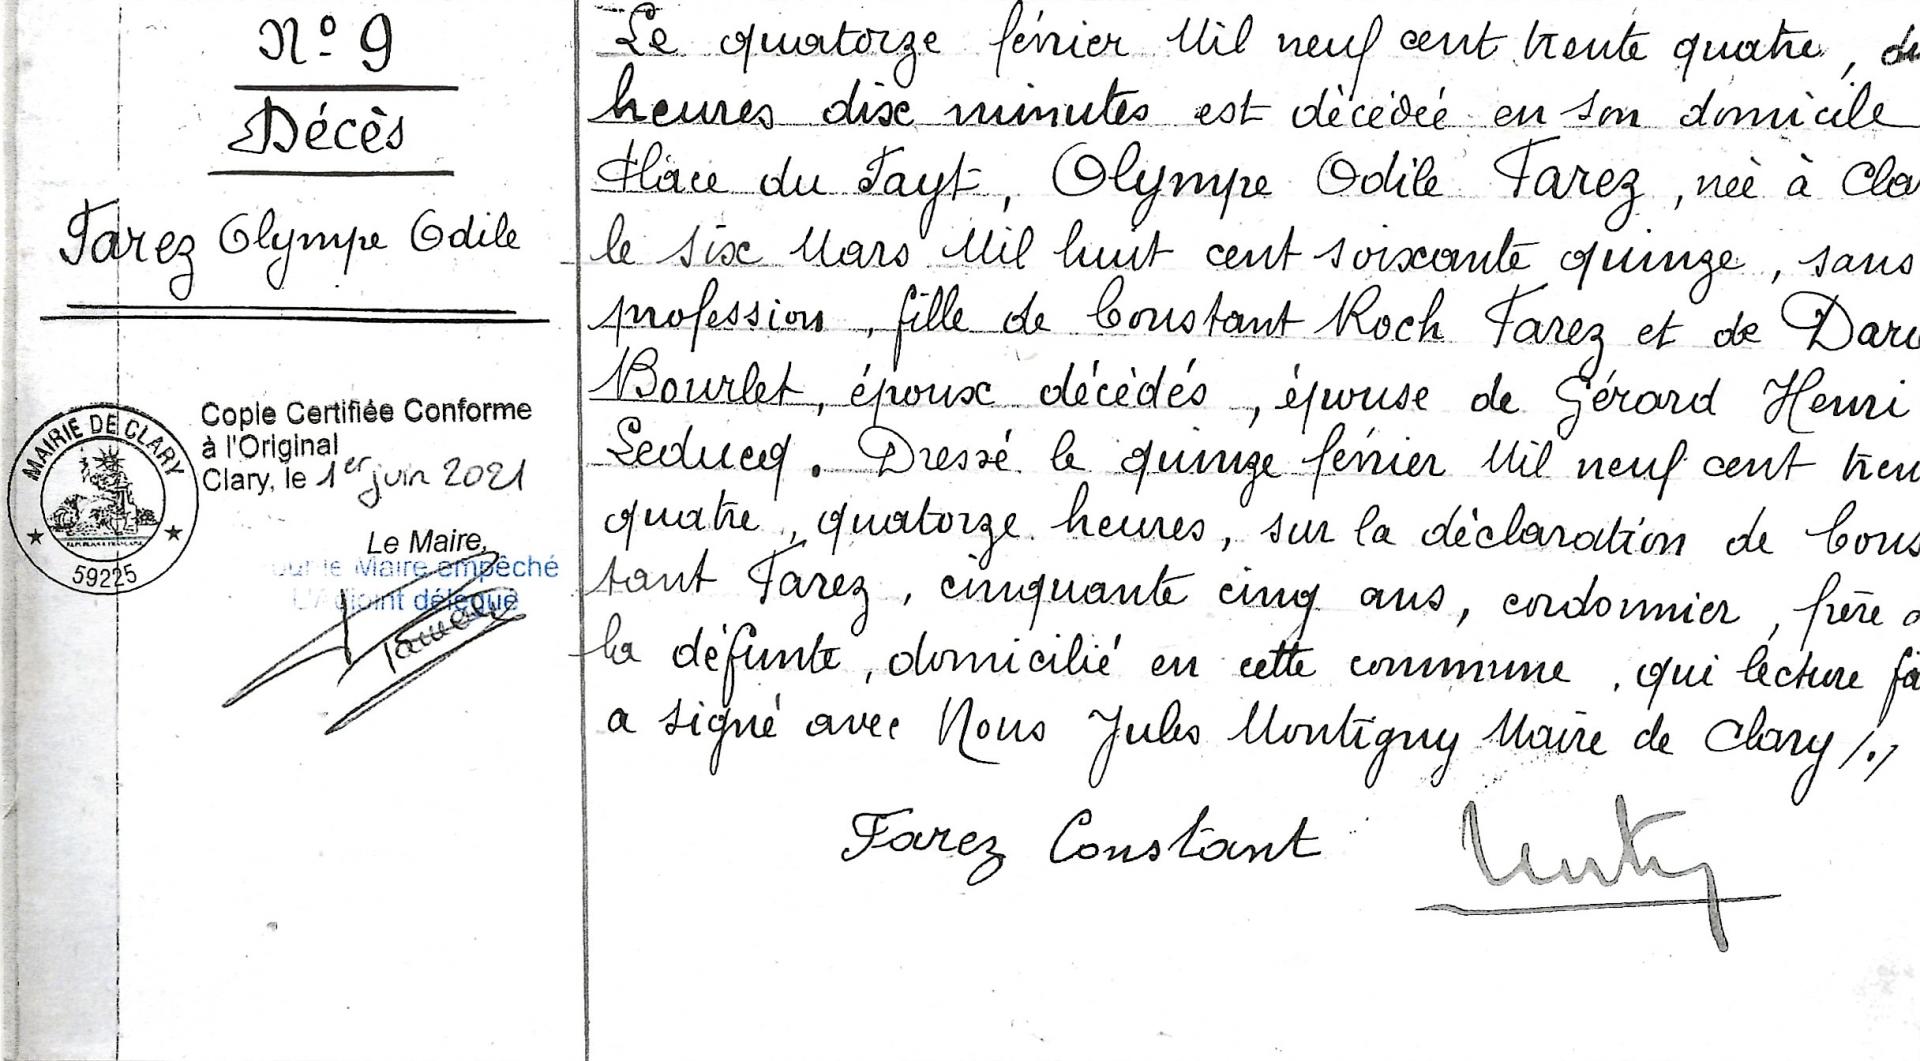 N° 9
Décès
Farez Olympe Odile
Copie Certifiée Conforme
à l'Original
Clary, le 1er juin 2021
Le Maire,
our le Maire empêché
L'Adjoint délégué
MAIRIE DE CLARY
59225
Le quatorze février Mil neuf cent trente quatre, di
heures dix minutes est décédée en son domicile
Place du Fayt, Olympe Odile Farez, née à Cla
le six Mars Mil huit cent soixante quinze, sans
profession, fille de Constant Roch Farez et de Dari
Bourlet, époux décédés, épouse de Gérard Henri
Leducq. Dressé le quinze février Mil neuf cent tren
quatre, quatorze heures, sur la déclaration de Cons
tant Farez, cinquante cinq ans, cordonnier, frère d
la défunte, domicilié en cette commune, qui lecture fa
a signé avec Nous Jules Montigny Maire de Clary /.,
Farez Constant